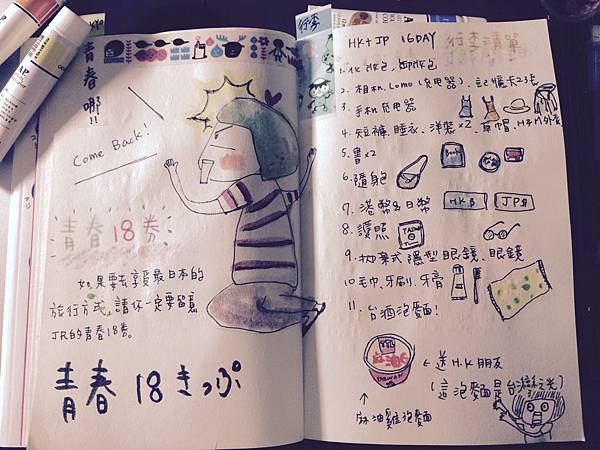 青春哪!!
Come Back!
青春18券
如果要去享受最日本的
旅行方式,請你一定要留意
JR的青春18券。
青春18きっぷ
行李
HK+JP 16DAY
行李清單
1.化妝包,卸妝包
2.相机,Lomo(充电器)、記憶卡23張
3.手机充电器
4.短褲、睡衣、洋裝x2、草帽、H&M外套
5.書x2
Book
6.隨身包
7.港幣&日幣
HK$
JP$
8.護照
TAIWAN
9.拋棄式隱型眼鏡、眼鏡
10.毛巾、牙刷、牙膏
11.台酒泡麵!
TAIWAN
←送H.K朋友
(這泡麵是台灣之光)
↑
麻油雞泡麵